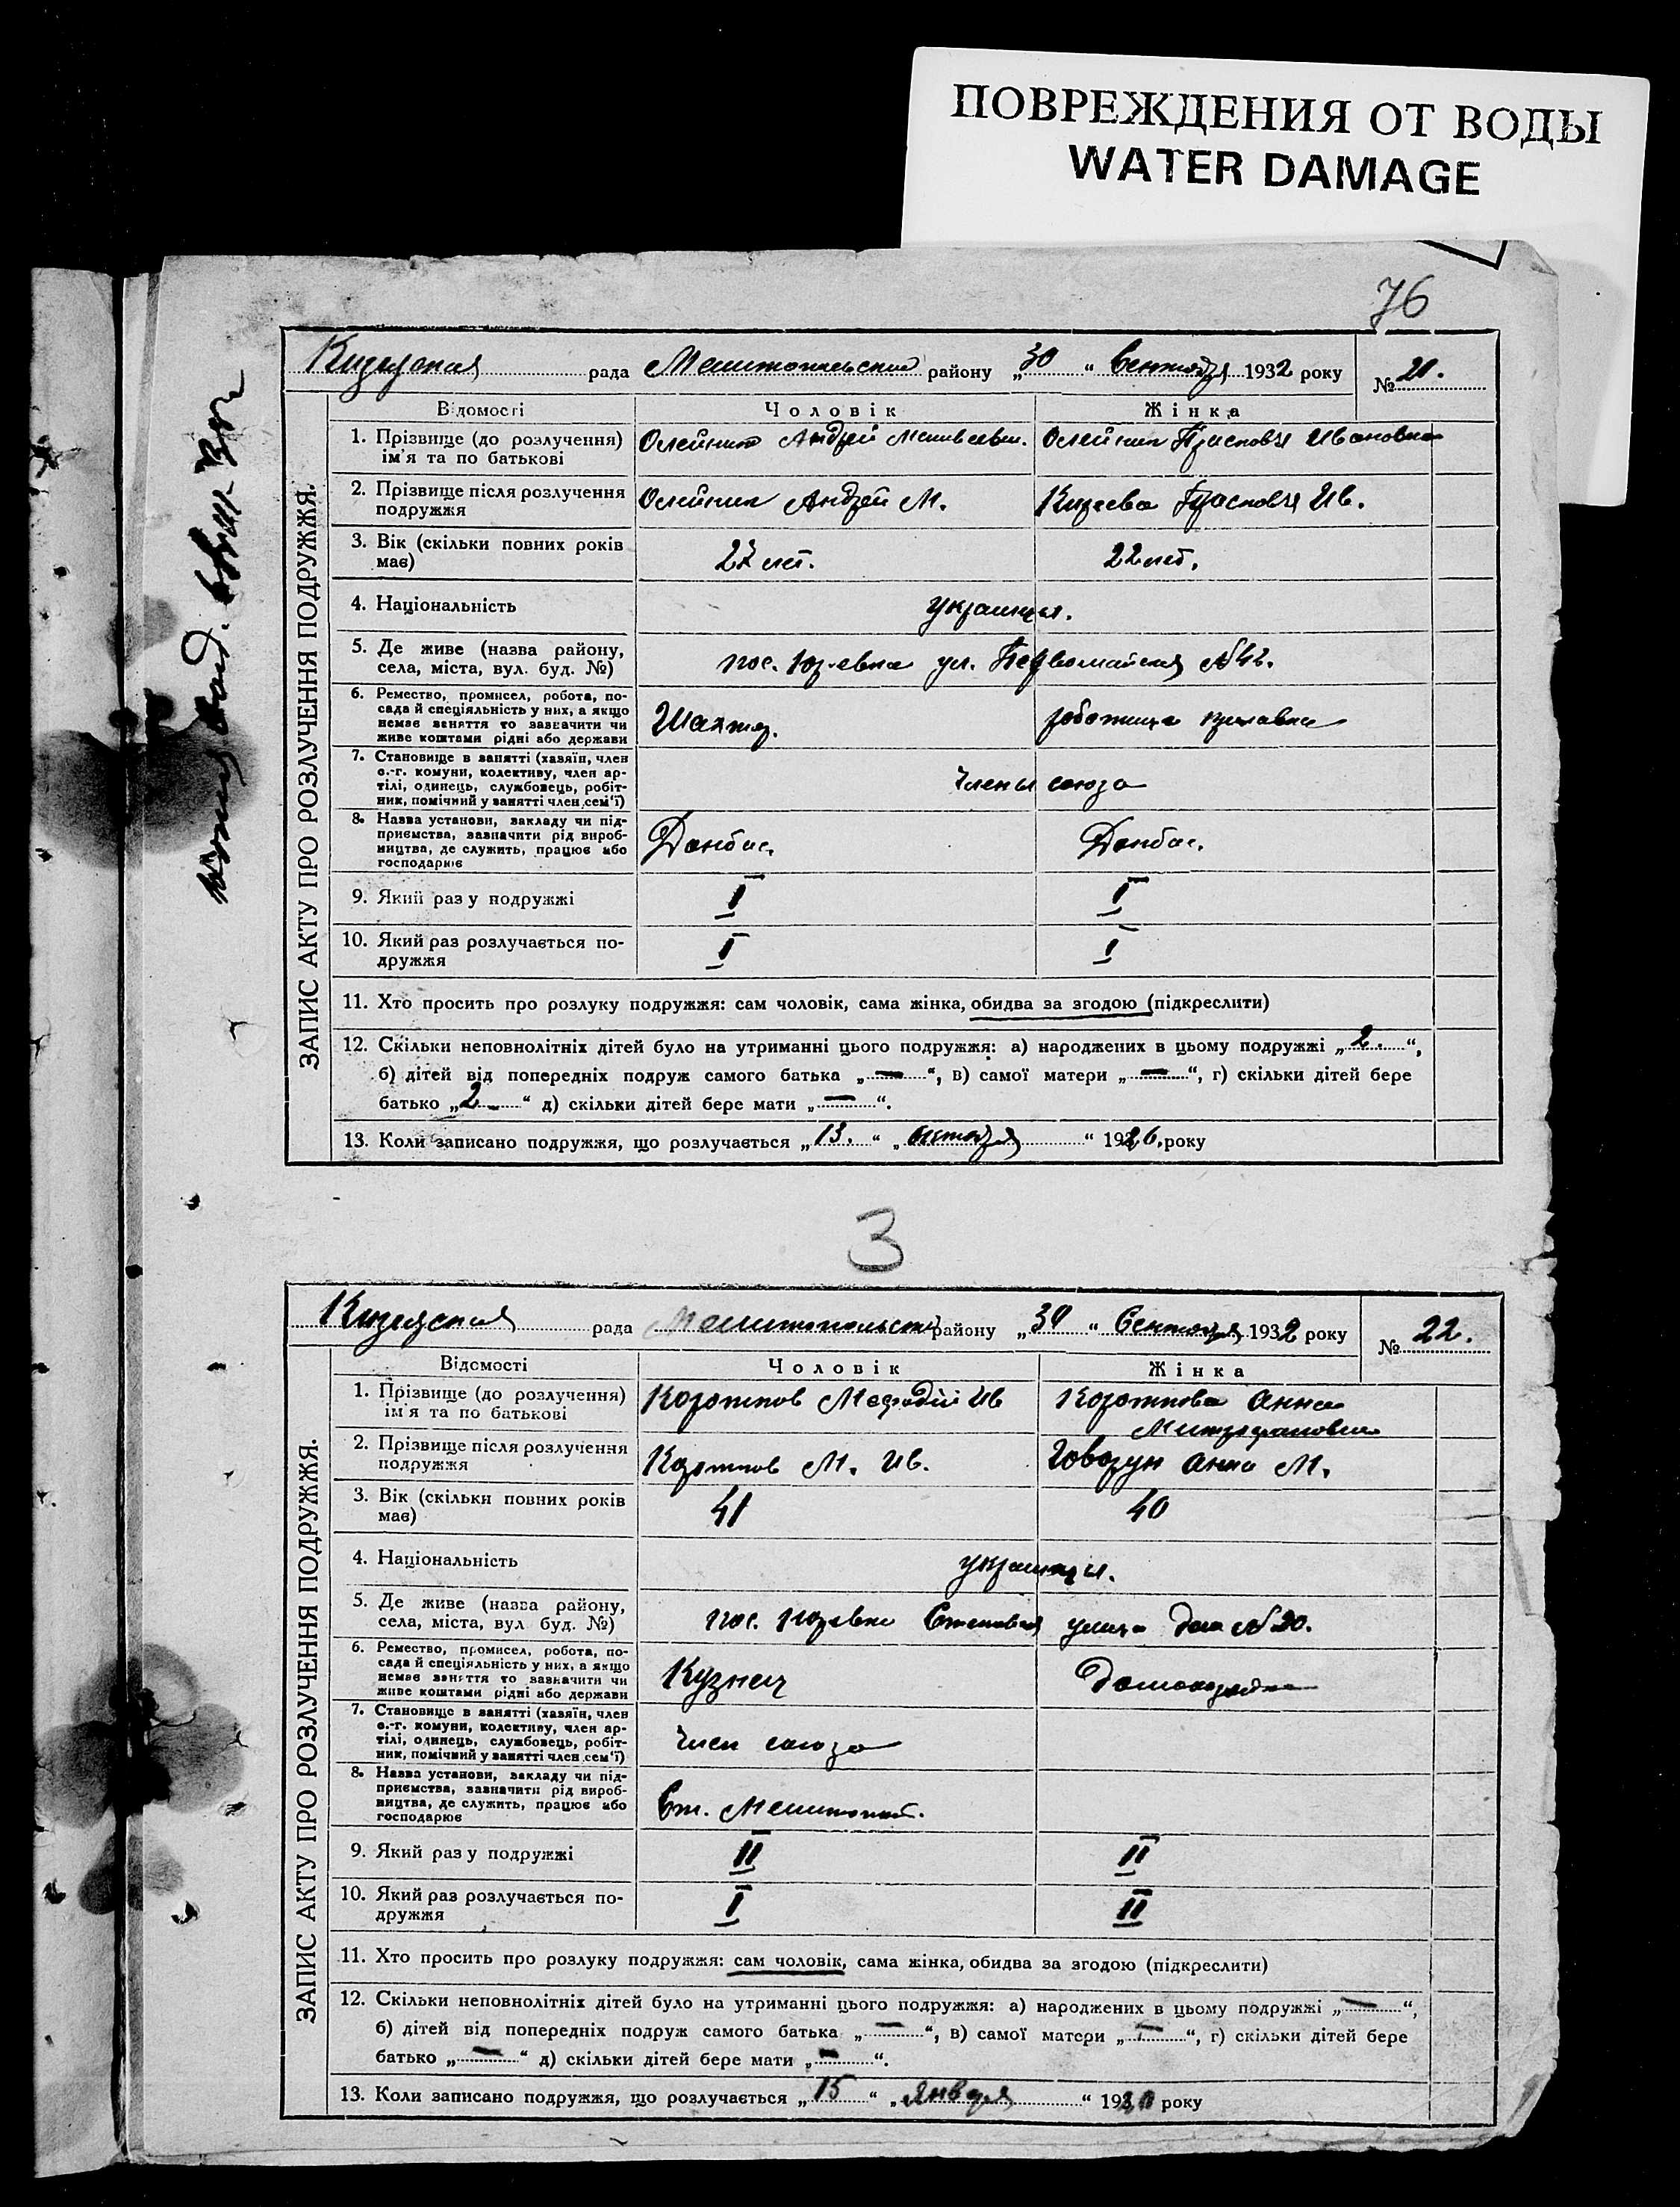 ПОВРЕЖДЕНИЯ ОТ ВОДЫ
WATER DAMAGE
76
рада Мелитопольский району „30 “ Сентября 1932 року
№ 21.
ЗАПИС АКТУ ПРО РОЗЛУЧЕННЯ ПОДРУЖЖЯ.
Відомості Чоловік Жінка
1. Прізвище (до розлучення) ім'я та по батькові Олейник Андрей Матвеевич. Олейник Прасковья Ивановна
2. Прізвище після розлучення подружжя Олейник Андрей М. Киреева Прасковья Ив.
3. Вік (скільки повних років має) 27 лет. 22 лет.
4. Національність украинцы.
5. Де живе (назва району, села, міста, вул. буд. №) пос. Юрьевка ул. Первомайская №42.
6. Ремество, промисел, робота, посада й спеціяльність у них, а якщо немає заняття то зазначити чи живе коштами рідні або держави Шахтер. работница
7. Становище в занятті (хазяїн, член с.-г. комуни, колективу, член артілі, одинець, службовець, робітник, помічний у занятті член сем'ї) Члены союза
8. Назва установи, закладу чи підприємства, зазначити рід виробництва, де служить, працює або господарює Донбас. Донбас.
9. Який раз у подружжі I I
10. Який раз розлучається подружжя I I
11. Хто просить про розлуку подружжя: сам чоловік, сама жінка, обидва за згодою (підкреслити)
12. Скільки неповнолітніх дітей було на утриманні цього подружжя: а) народжених в цьому подружжі „ 2. “,
б) дітей від попередніх подруж самого батька „ — “, в) самої матери „ — “, г) скільки дітей бере
батько „ 2 “ д) скільки дітей бере мати „ — “.
13. Коли записано подружжя, що розлучається „ 13. “ „ октября “ 1926. року
3
рада Мелитопольский району „ 30 “ Сентября 1932 року
№ 22.
ЗАПИС АКТУ ПРО РОЗЛУЧЕННЯ ПОДРУЖЖЯ.
Відомості Чоловік Жінка
1. Прізвище (до розлучення) ім'я та по батькові Коротков Мефодий Ив Короткова Анна Митрофановна
2. Прізвище після розлучення подружжя Коротков М. Ив. Говорун Анна М.
3. Вік (скільки повних років має) 41 40
4. Національність украинцы.
5. Де живе (назва району, села, міста, вул буд. №) пос. Юрьевка Степовая улица дом №20.
6. Ремество, промисел, робота, посада й спеціяльність у них, а якщо немає заняття то зазначити чи живе коштами рідні або держави Кузнец Домохозяйка
7. Становище в занятті (хазяїн, член с.-г. комуни, колективу, член артілі, одинець, службовець, робітник, помічний у занятті член сем'ї) Член союза
8. Назва установи, закладу чи підприємства, зазначити рід виробництва, де служить, працює або господарює Ст. Мелитополь.
9. Який раз у подружжі II II
10. Який раз розлучається подружжя I II
11. Хто просить про розлуку подружжя: сам чоловік, сама жінка, обидва за згодою (підкреслити)
12. Скільки неповнолітніх дітей було на утриманні цього подружжя: а) народжених в цьому подружжі „ — “,
б) дітей від попередніх подруж самого батька „ — “, в) самої матери „ — “, г) скільки дітей бере
батько „ — “ д) скільки дітей бере мати „ — “.
13. Коли записано подружжя, що розлучається „ 15 “ „ Января “ року